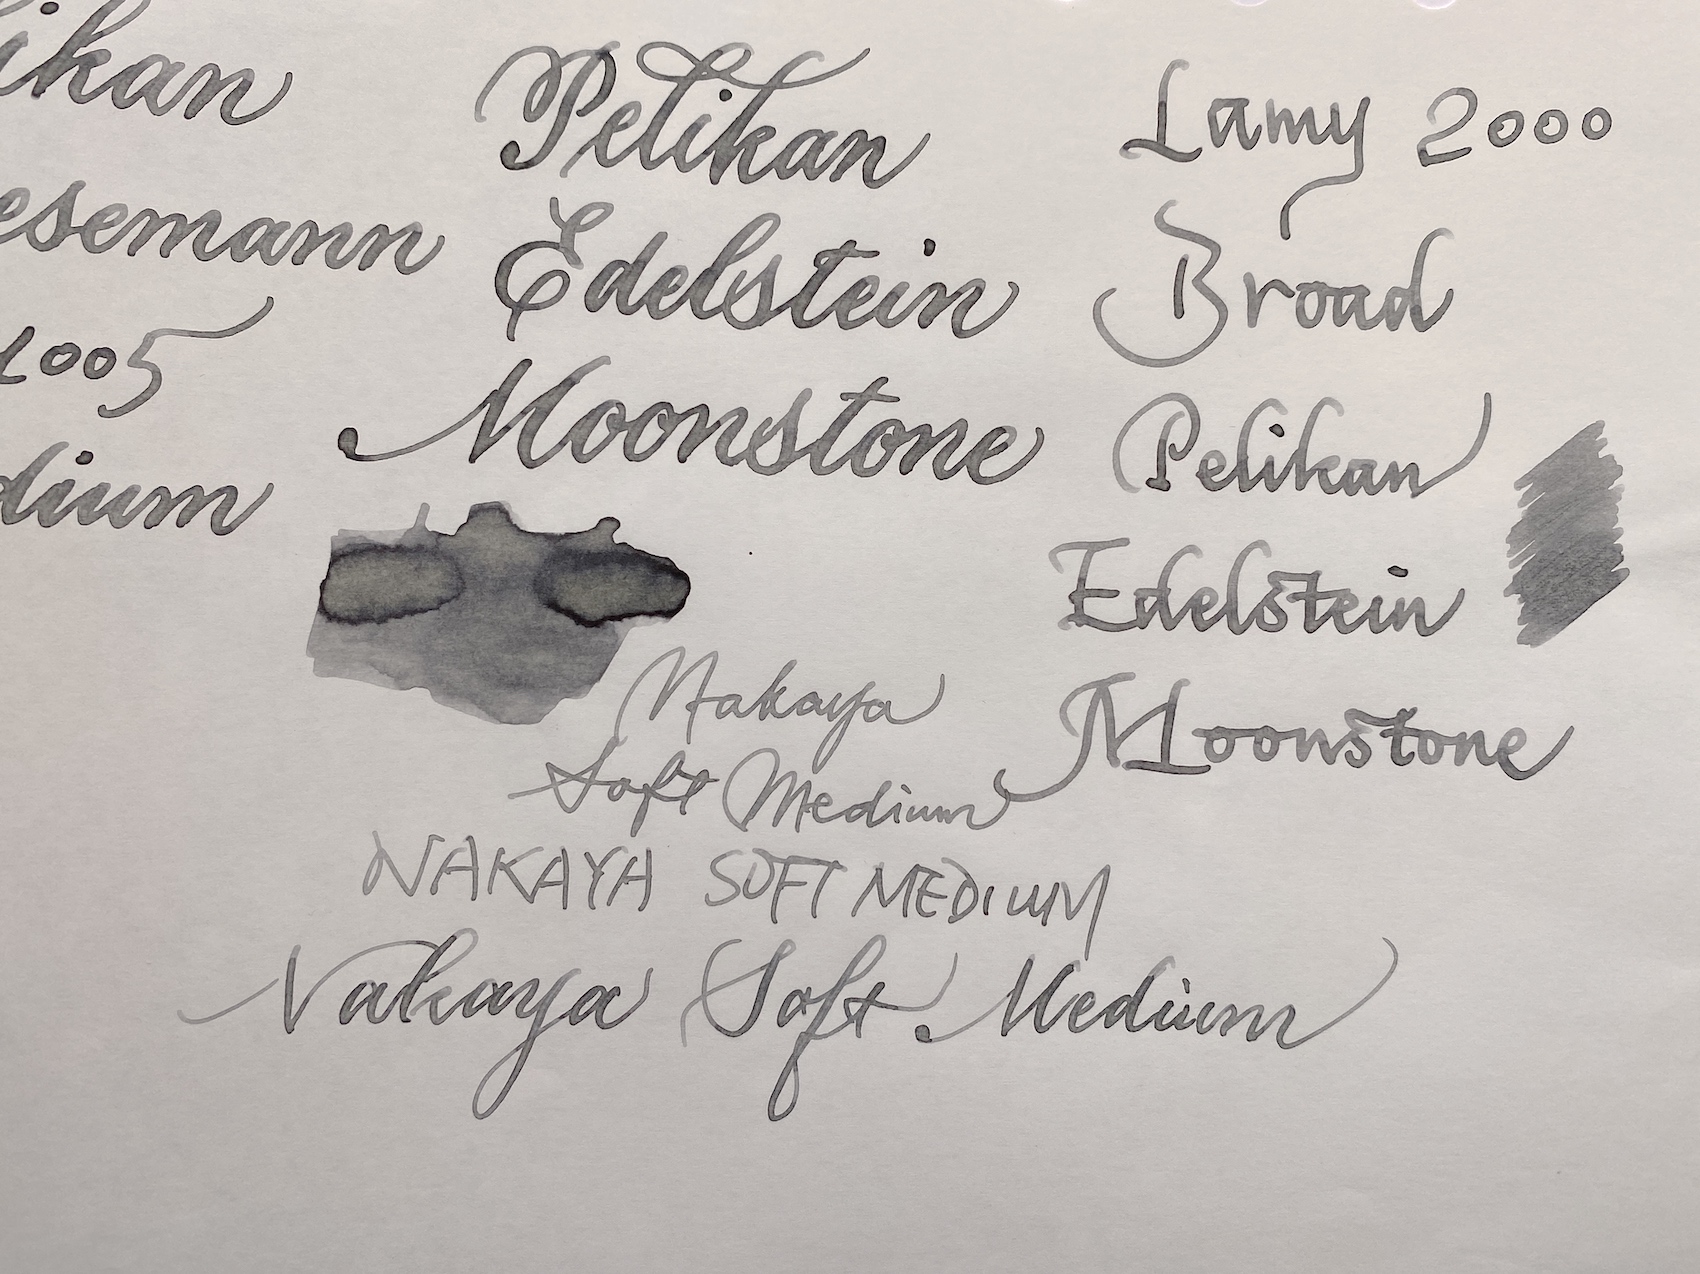 ikan
esemann
1005
dium
Pelikan
Edelstein
Moonstone
Lamy 2000
Broad
Pelikan
Edelstein
Moonstone
Nakaya
Soft Medium
NAKAYA SOFT MEDIUM
Nakaya Soft Medium